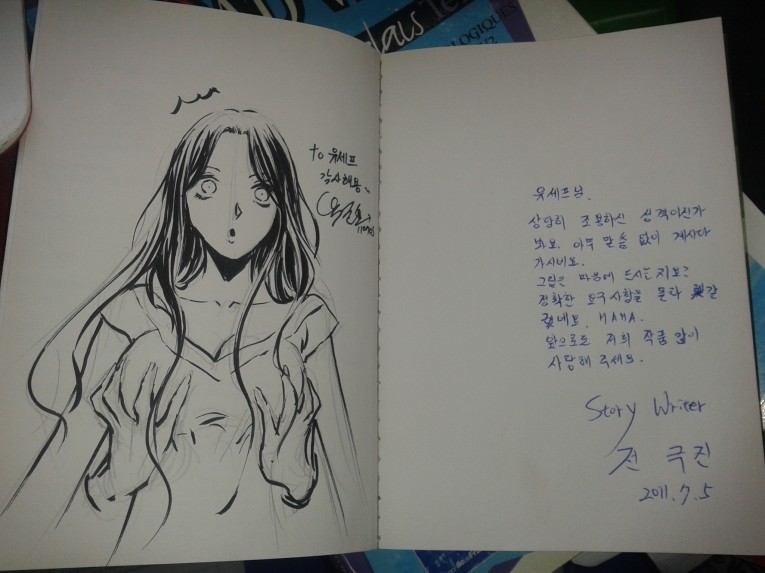 LOGIQUES
to 유세프
감사해용~
유세프님.
상당히 조용하신 성격이신가
봐요. 아무 말씀 없이 계시다
가시네요.
그림은 마음에 드시는지요?
정확한 요구사항을 몰라 헷갈
렸네요. HAHA.
앞으로도 저희 작품 많이
사랑해 주세요.
Story Writer
전극진
2011.7.5